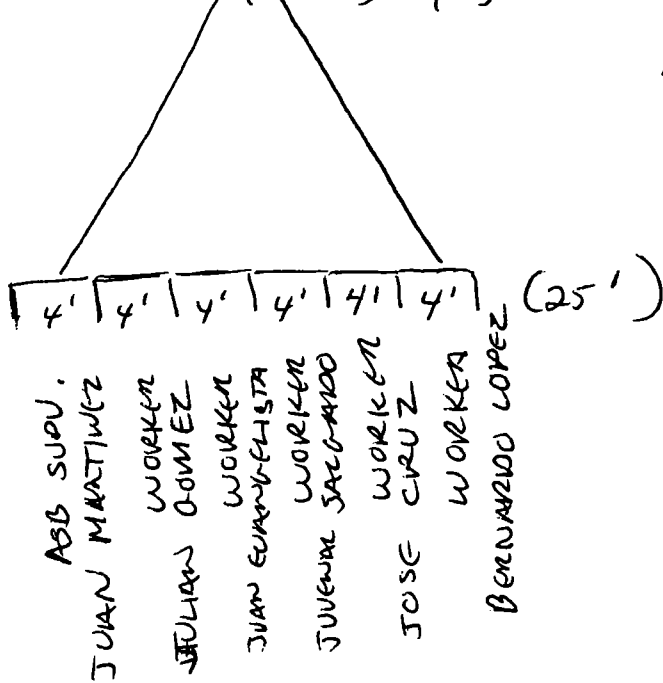 4' 4' 4' 4' 4' 4' (25')
ASB SUPV.
JUAN MARTINEZ
WORKER
JULIAN GOMEZ
WORKER
JUAN EVANGELISTA
WORKER
JUVENAL SALGADO
WORKER
JOSE CRUZ
WORKER
BERNARDO LOPEZ